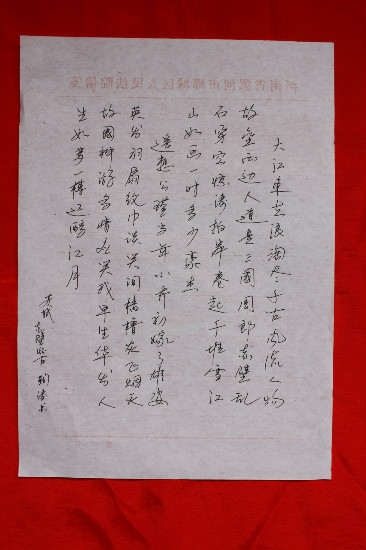 河南省漯河市郾城区人民法院信笺
大江東去浪淘尽千古風流人物
故壘西边人道是三國周郎赤壁乱
石穿空惊涛拍岸卷起千堆雪江
山如画一时多少豪杰
遥想公瑾当年小乔初嫁了雄姿
英发羽扇纶巾谈笑间樯橹灰飞烟灭
故國神游多情应笑我早生华发人
生如梦一樽还酹江月
苏轼
赤壁怀古